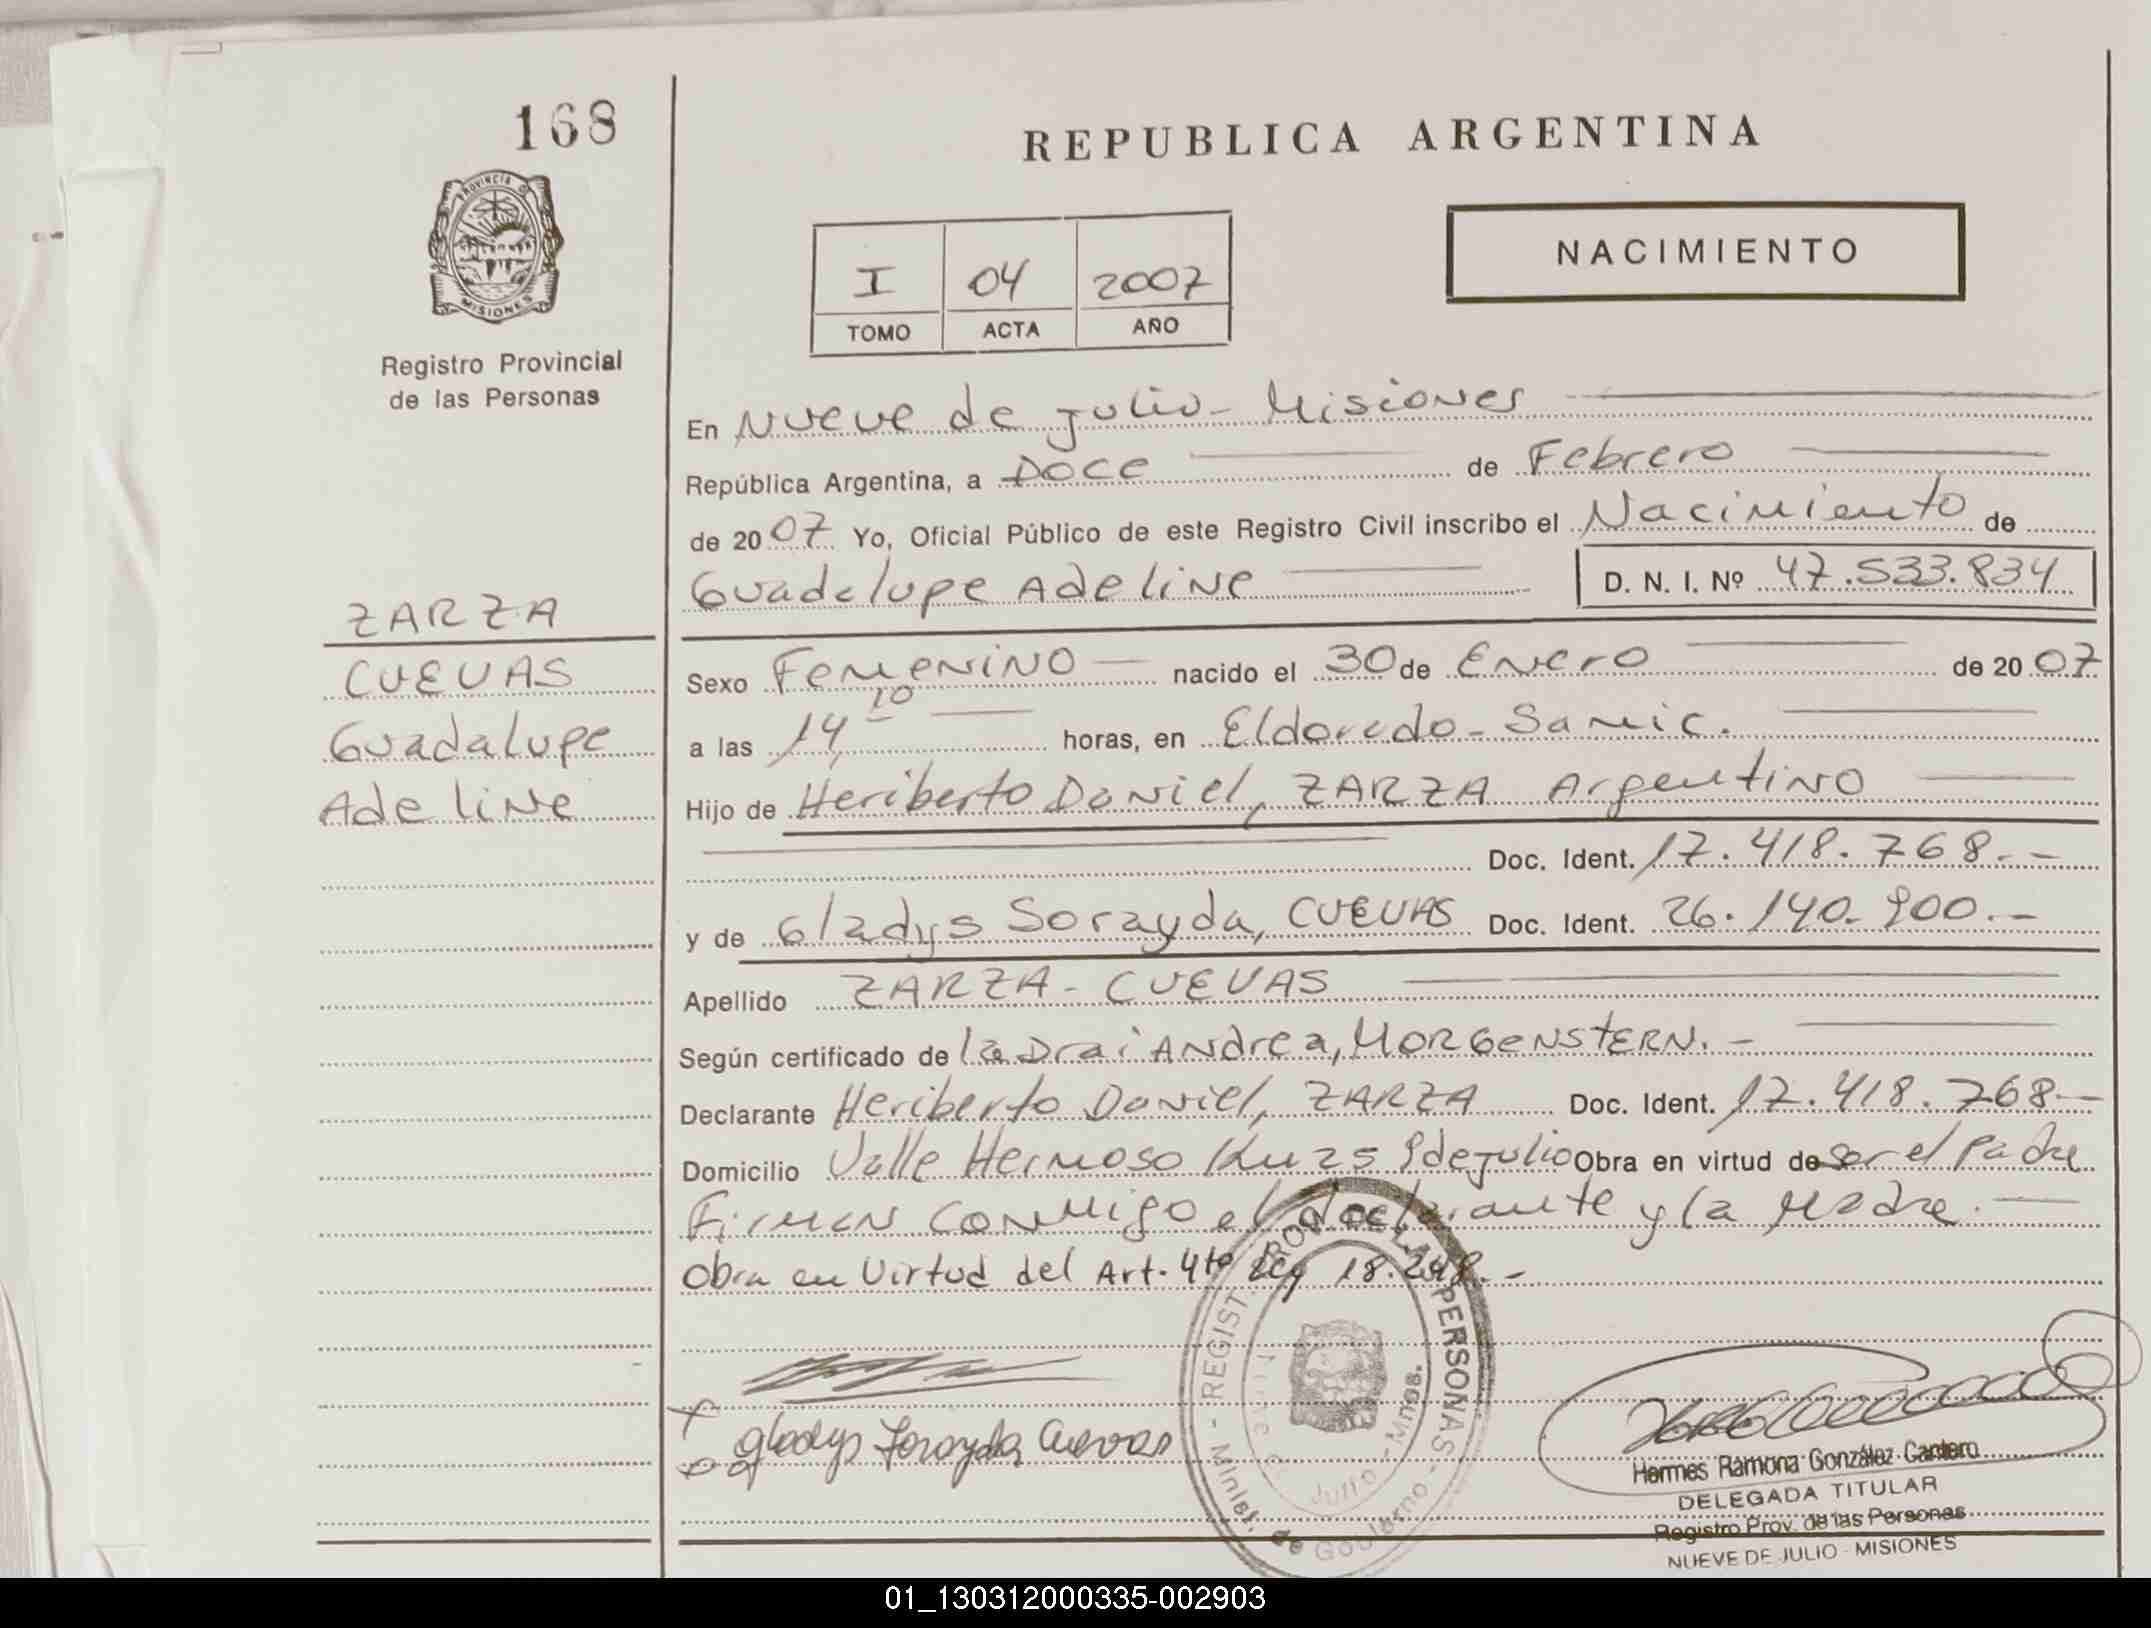 168
PROVINCIA D
MISIONES
Registro Provincial
de las Personas
REPUBLICA ARGENTINA
NACIMIENTO
I 04 2007
TOMO ACTA AÑO
En Nueve de julio - Misiones
República Argentina, a Doce de Febrero
de 2007 Yo, Oficial Público de este Registro Civil inscribo el Nacimiento de
Guadalupe Adeline D. N. I. Nº 47.533.834
ZARZA
CUEVAS
Guadalupe
Adeline
Sexo Femenino nacido el 30 de Enero de 2007
a las 14,10 horas, en Eldorado - Samic.
Hijo de Heriberto Daniel, ZARZA Argentino
Doc. Ident. 17.418.768.-
y de Gladys Sorayda, CUEVAS Doc. Ident. 26.140.900.-
Apellido ZARZA - CUEVAS
Según certificado de la Dra; Andrea, MORGENSTERN.-
Declarante Heriberto Daniel, ZARZA Doc. Ident. 17.418.768.-
Domicilio Valle Hermoso Km 25 9 de julio Obra en virtud de ser el Padre
Firman conmigo el declarante y la Madre.
Obra en Virtud del Art. 4to Ley 18.248.-
Gladys Sorayda Cuevas
- REGIST. PROV. DE LAS PERSONAS -
Minist. de Gobierno
Nueve de Julio - Mnes.
Hermes Ramona González Cantero
DELEGADA TITULAR
Registro Prov. de las Personas
NUEVE DE JULIO - MISIONES
01_130312000335-002903